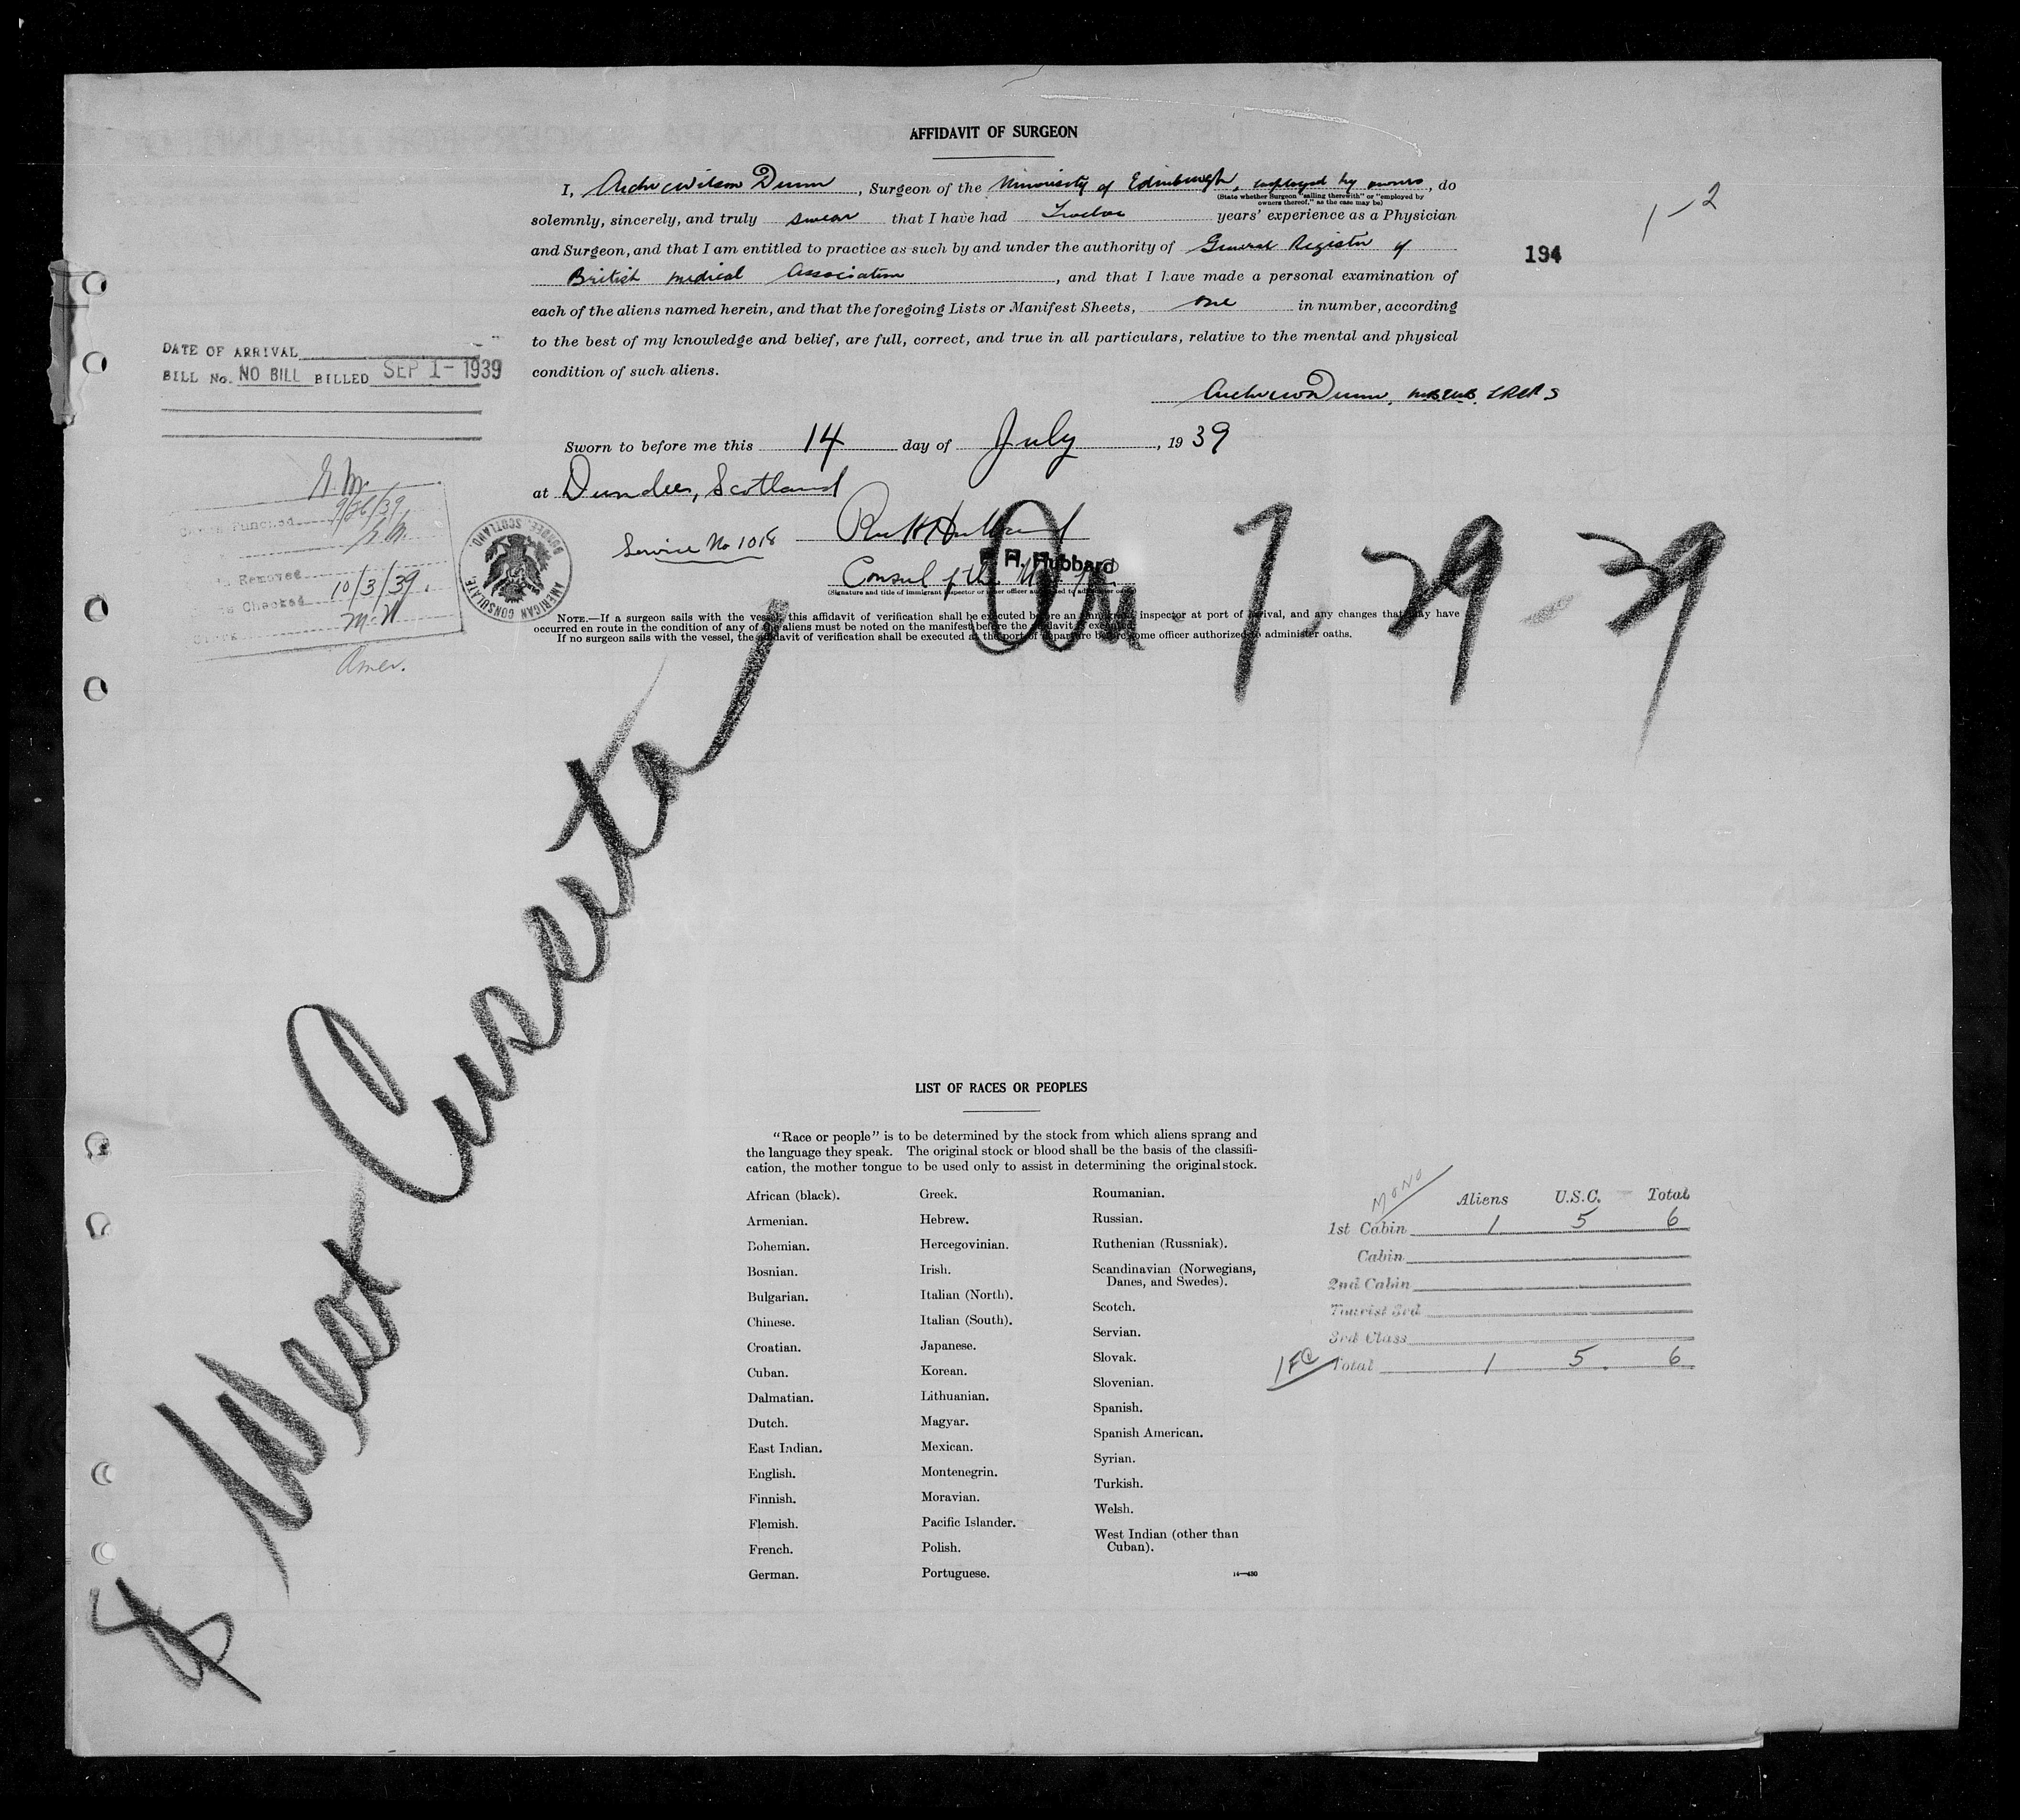 AFFIDAVIT OF SURGEON
I, Archie Wilson Dunn, Surgeon of the University of Edinburgh, employed by owners, do
(State whether Surgeon "sailing therewith" or "employed by
owners thereof," as the case may be)
solemnly, sincerely, and truly swear that I have had Twelve years' experience as a Physician
and Surgeon, and that I am entitled to practice as such by and under the authority of General Register of
British Medical Association, and that I have made a personal examination of
each of the aliens named herein, and that the foregoing Lists or Manifest Sheets, one in number, according
to the best of my knowledge and belief, are full, correct, and true in all particulars, relative to the mental and physical
condition of such aliens.
1-2
194
DATE OF ARRIVAL
BILL No. NO BILL BILLED SEP 1-1939
Dunn
Sworn to before me this 14 day of July, 1939
at Dundee, Scotland
Service No 1018
R. H. Hubbard
Consul of the
(Signature and title of immigrant inspector or other officer authorized to administer oaths)
AMERICAN CONSULATE, DUNDEE, SCOTLAND.
Punched 9/26/39
Removed
Checked 10/3/39.
Clerk
Amer.
NOTE.—If a surgeon sails with the vessel, this affidavit of verification shall be executed before an immigrant inspector at port of arrival, and any changes that may have
occurred en route in the condition of any of the aliens must be noted on the manifest before the affidavit is executed.
If no surgeon sails with the vessel, the affidavit of verification shall be executed at the port of departure before some officer authorized to administer oaths.
Arr 7-29-39
West Cusseta
LIST OF RACES OR PEOPLES
"Race or people" is to be determined by the stock from which aliens sprang and
the language they speak. The original stock or blood shall be the basis of the classifi-
cation, the mother tongue to be used only to assist in determining the original stock.
African (black).
Armenian.
Bohemian.
Bosnian.
Bulgarian.
Chinese.
Croatian.
Cuban.
Dalmatian.
Dutch.
East Indian.
English.
Finnish.
Flemish.
French.
German.
Greek.
Hebrew.
Hercegovinian.
Irish.
Italian (North).
Italian (South).
Japanese.
Korean.
Lithuanian.
Magyar.
Mexican.
Montenegrin.
Moravian.
Pacific Islander.
Polish.
Portuguese.
Roumanian.
Russian.
Ruthenian (Russniak).
Scandinavian (Norwegians,
Danes, and Swedes).
Scotch.
Servian.
Slovak.
Slovenian.
Spanish.
Spanish American.
Syrian.
Turkish.
Welsh.
West Indian (other than
Cuban).
14—430
MONO
Aliens U.S.C. Total
1st Cabin 1 5 6
Cabin
2nd Cabin
Tourist 3rd
3rd Class
1FC Total 1 5 6